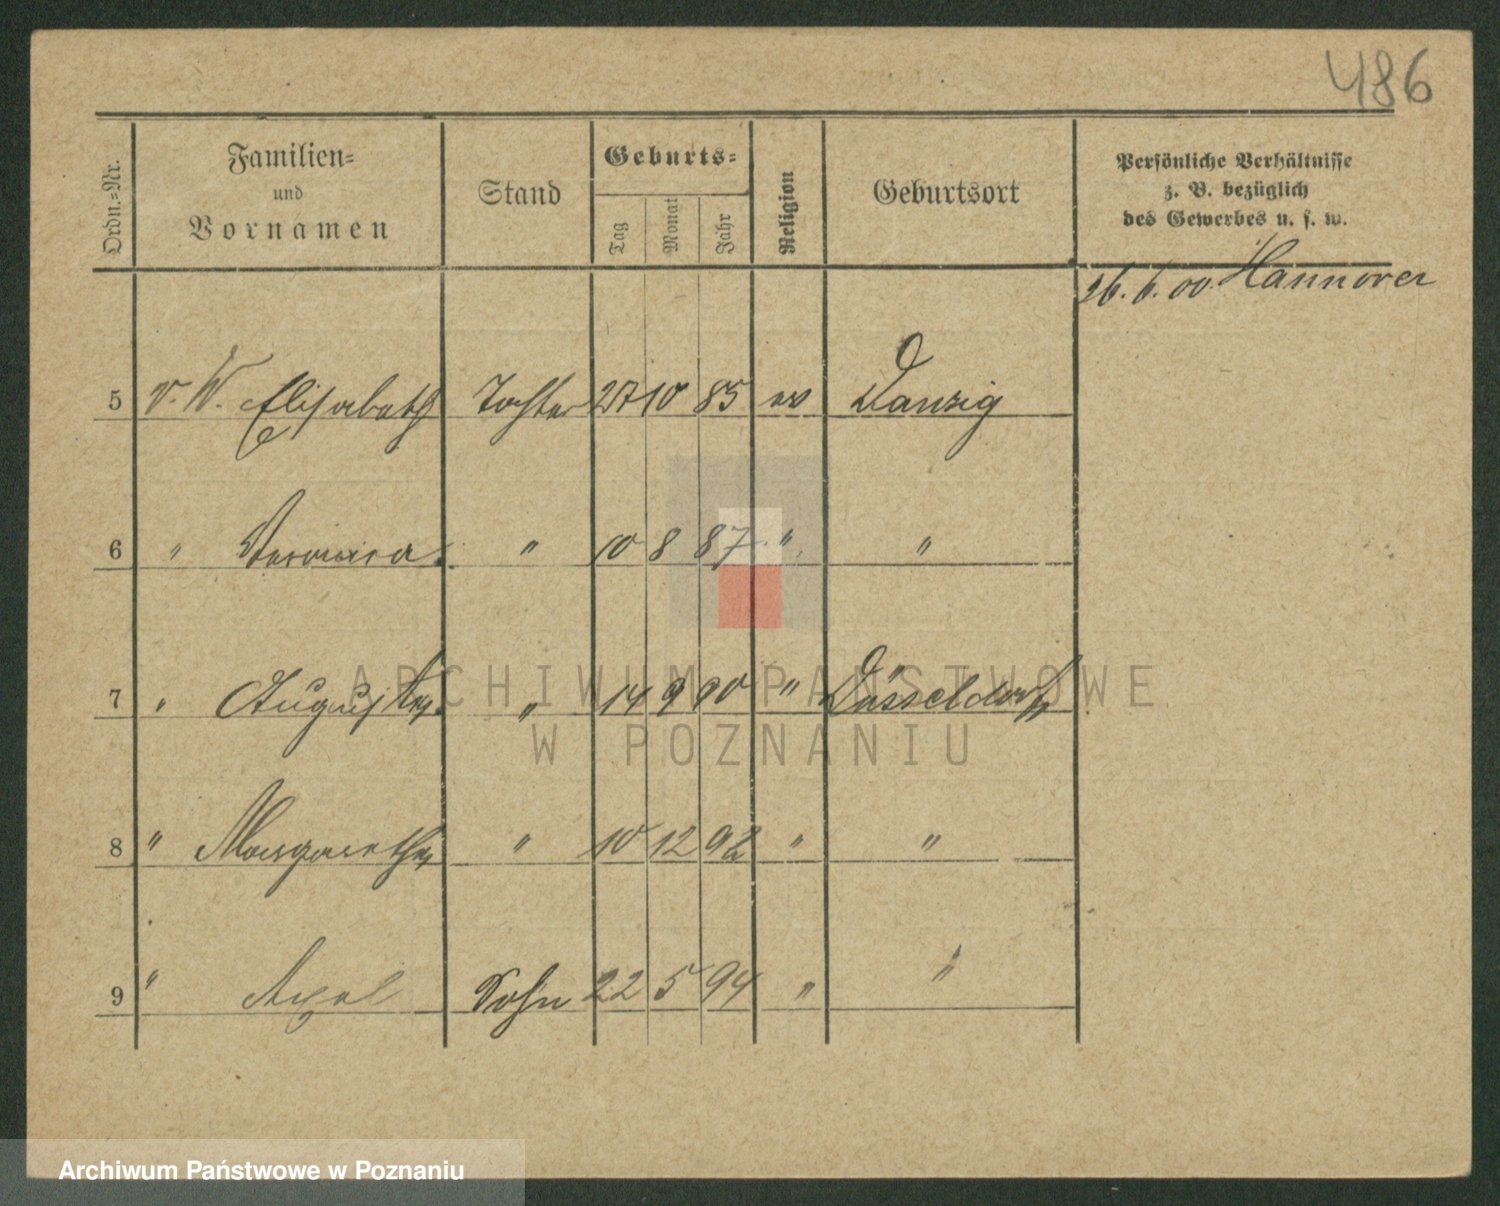 486
Ordn.=Nr.
Familien=
und
Vornamen
Stand
Geburts=
Tag
Monat
Jahr
Religion
Geburtsort
Persönliche Verhältnisse
z. B. bezüglich
des Gewerbes u. s. w.
26.6.00 Hannover
5 v. W. Elisabeth Tochter 27 10 85 ev Danzig
6 " " 10 8 87 " "
7 " " 14 9 90 " Düsseldorf
8 " Margarethe " 10 12 92 " "
9 " Axel Sohn 22 5 94 " "
ARCHIWUM PAŃSTWOWE
W POZNANIU
Archiwum Państwowe w Poznaniu